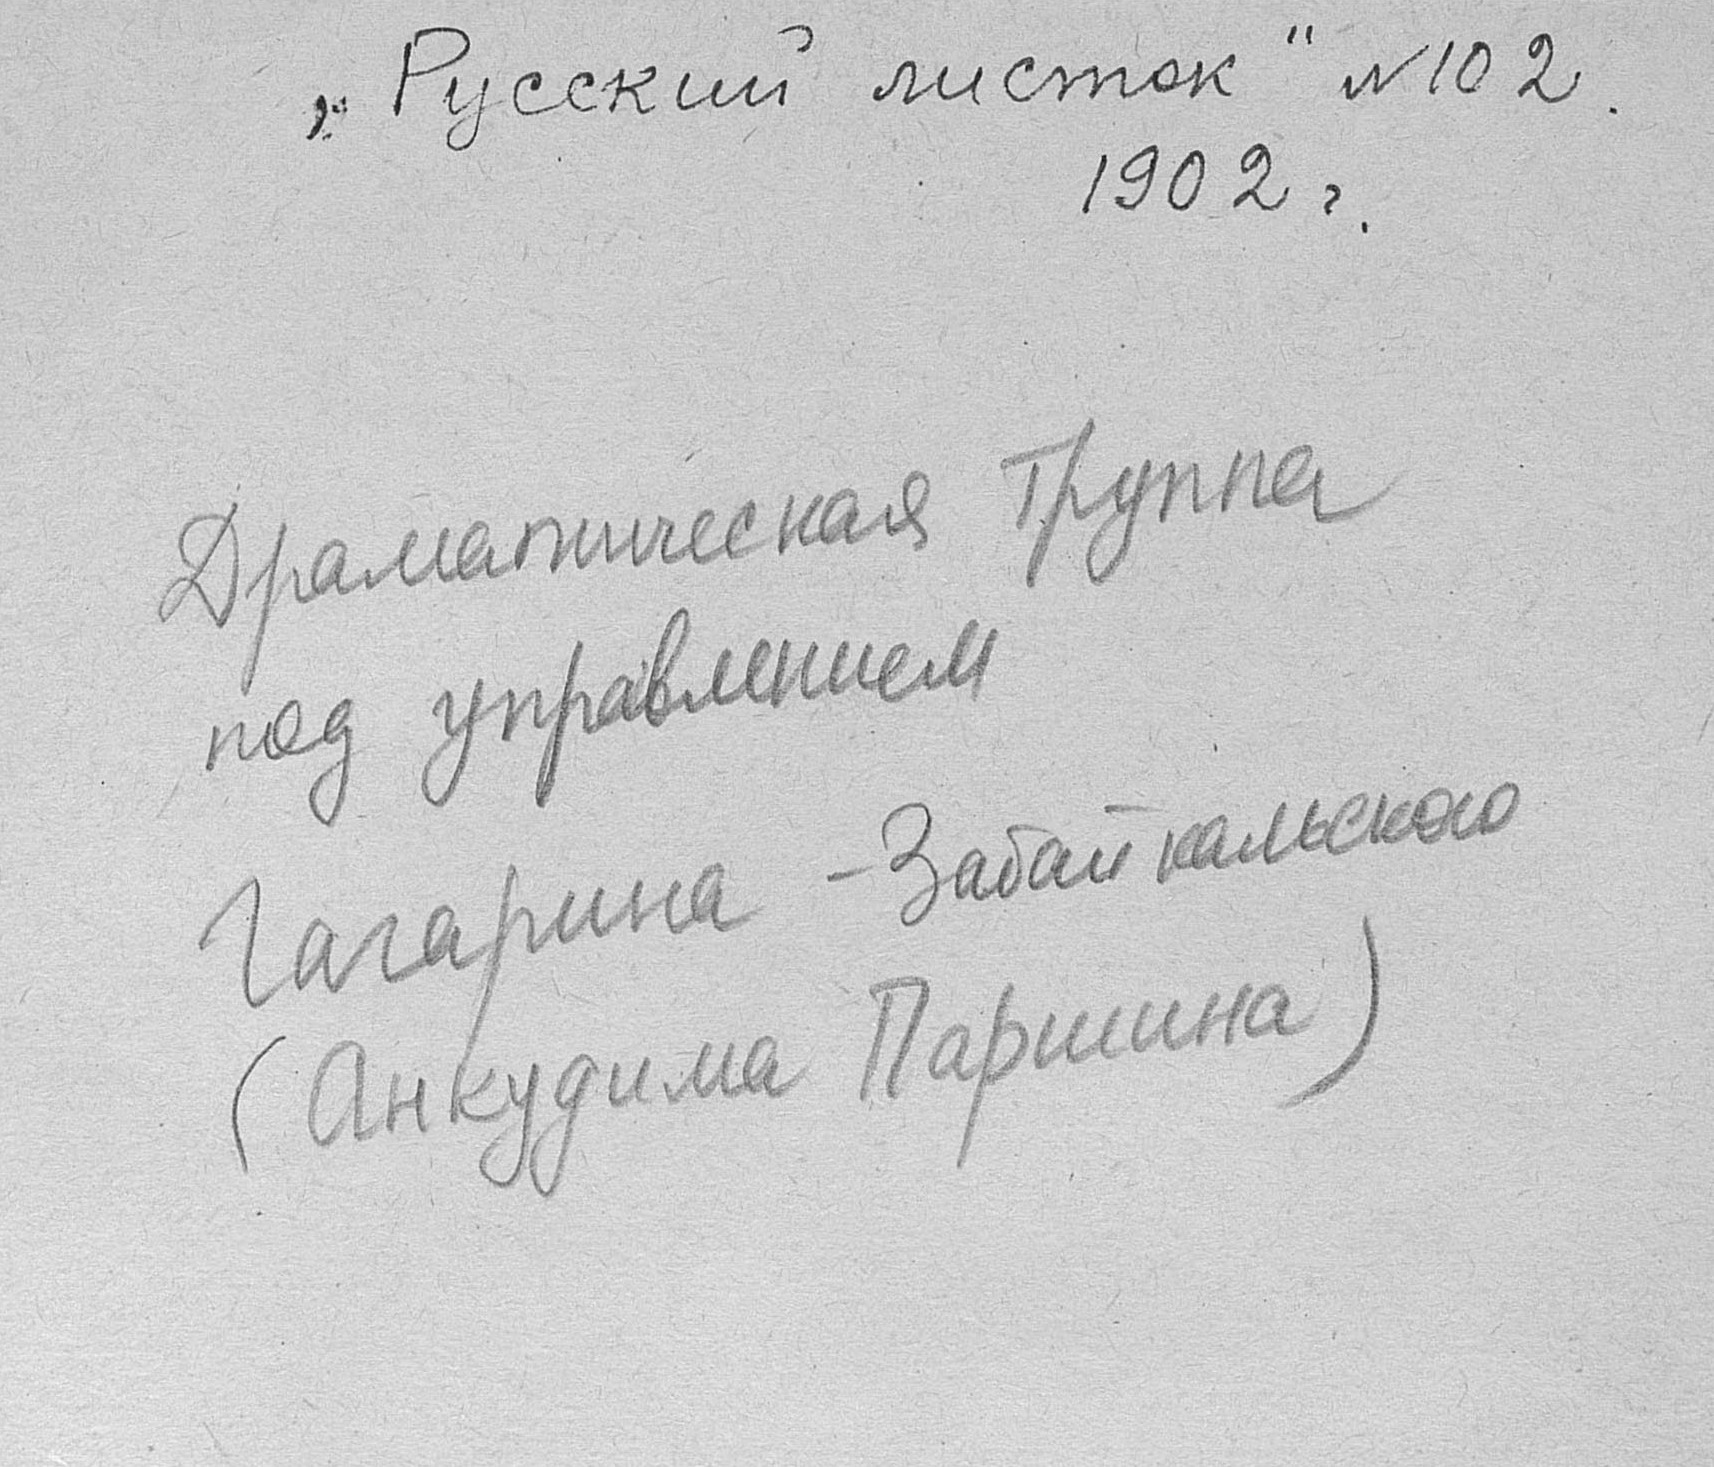 „Русский листок" N 102.
1902 г.
Драматическая Труппа
под управлением
Гагарина - Забайкальского
(Анкудима Паршина)